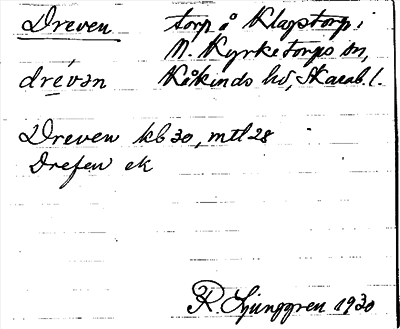 Dreven torp å Klapstorp i
N. Kyrketorps sn,
drévən Kåkinds hd, Skarab. l.
Dreven kb 30, mtl 28
Drefen ek
R. Ljunggren 1930